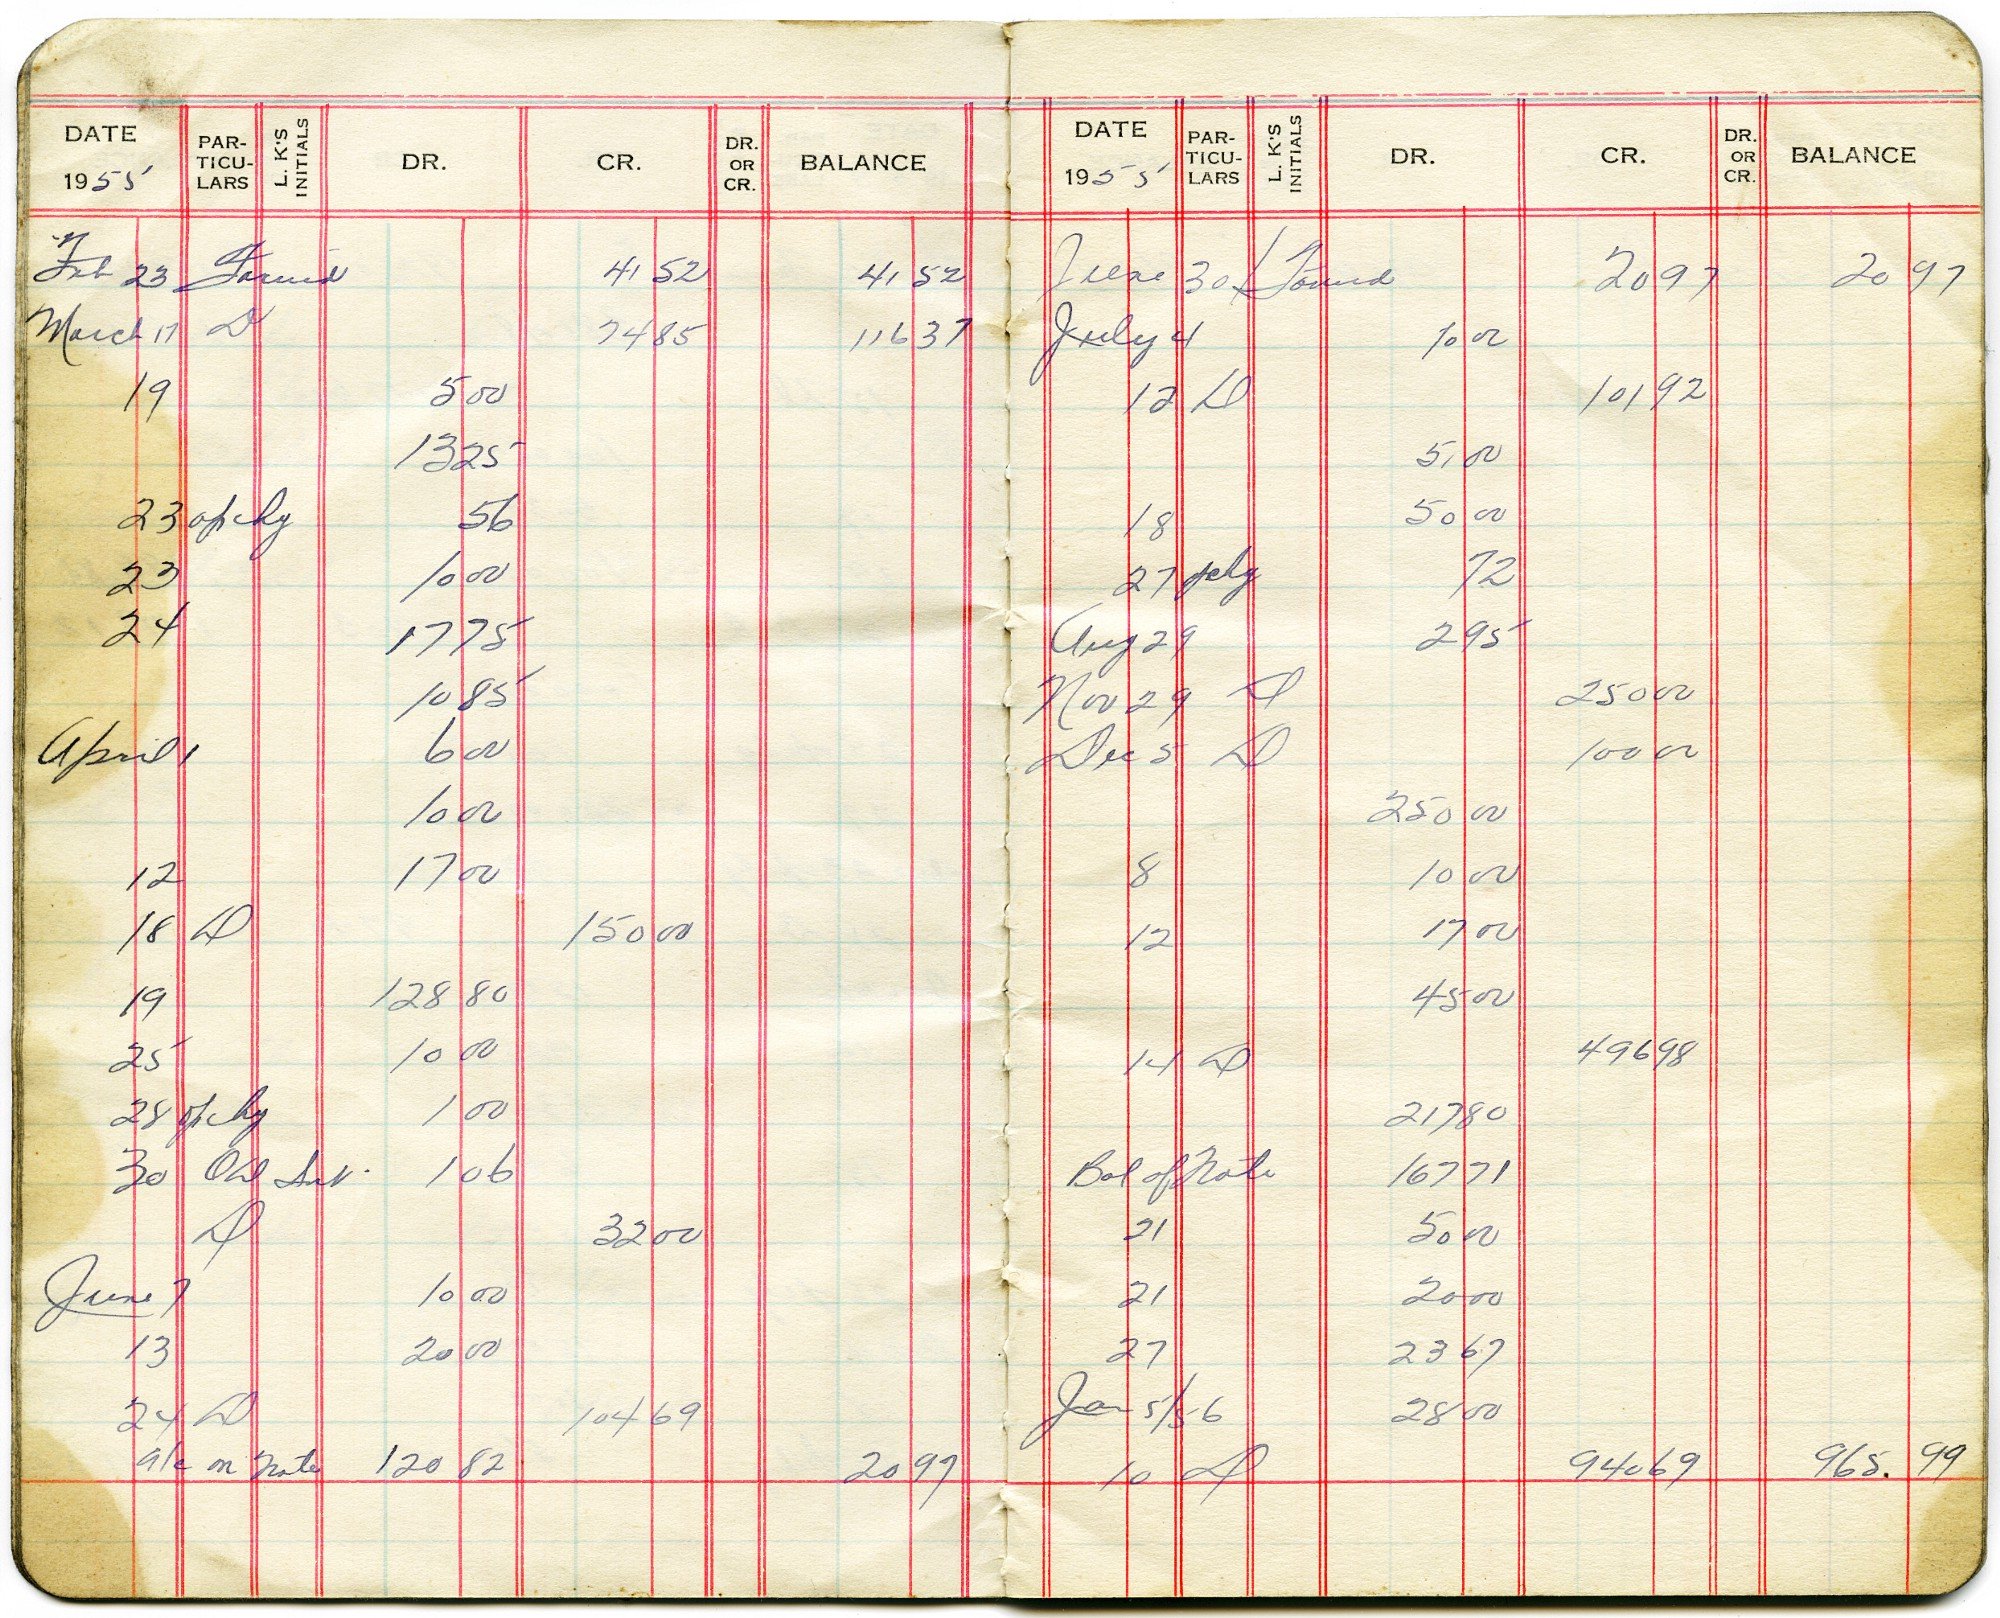 DATE PAR- TICU- LARS L. K'S INITIALS DR. CR. DR. OR CR. BALANCE
1955
Feb 23 Forwid 41 52 41 52
March 17 D 74 85 116 37
19 5 00
13 25
23 op chg 56
23 10 00
24 17 75
10 85
April 1 6 00
10 00
12 17 00
18 D 150 00
19 128 80
25 10 00
28 op chg 1 00
30 OD Int. 1 06
D 32 00
June 7 10 00
13 20 00
24 D 104 69
a/c on Note 120 82 20 97
DATE PAR- TICU- LARS L. K'S INITIALS DR. CR. DR. OR CR. BALANCE
1955
June 30 Forwid 20 97 20 97
July 4 10 00
12 D 101 92
5 00
18 50 00
27 chg 72
Aug 29 2 95
Nov 29 D 250 00
Dec 5 D 100 00
250 00
8 10 00
12 17 00
45 00
14 D 496 98
217 80
Bal of Note 167 71
21 50 00
21 20 00
27 23 67
Jan 5/56 28 00
10 D 940 69 965. 99